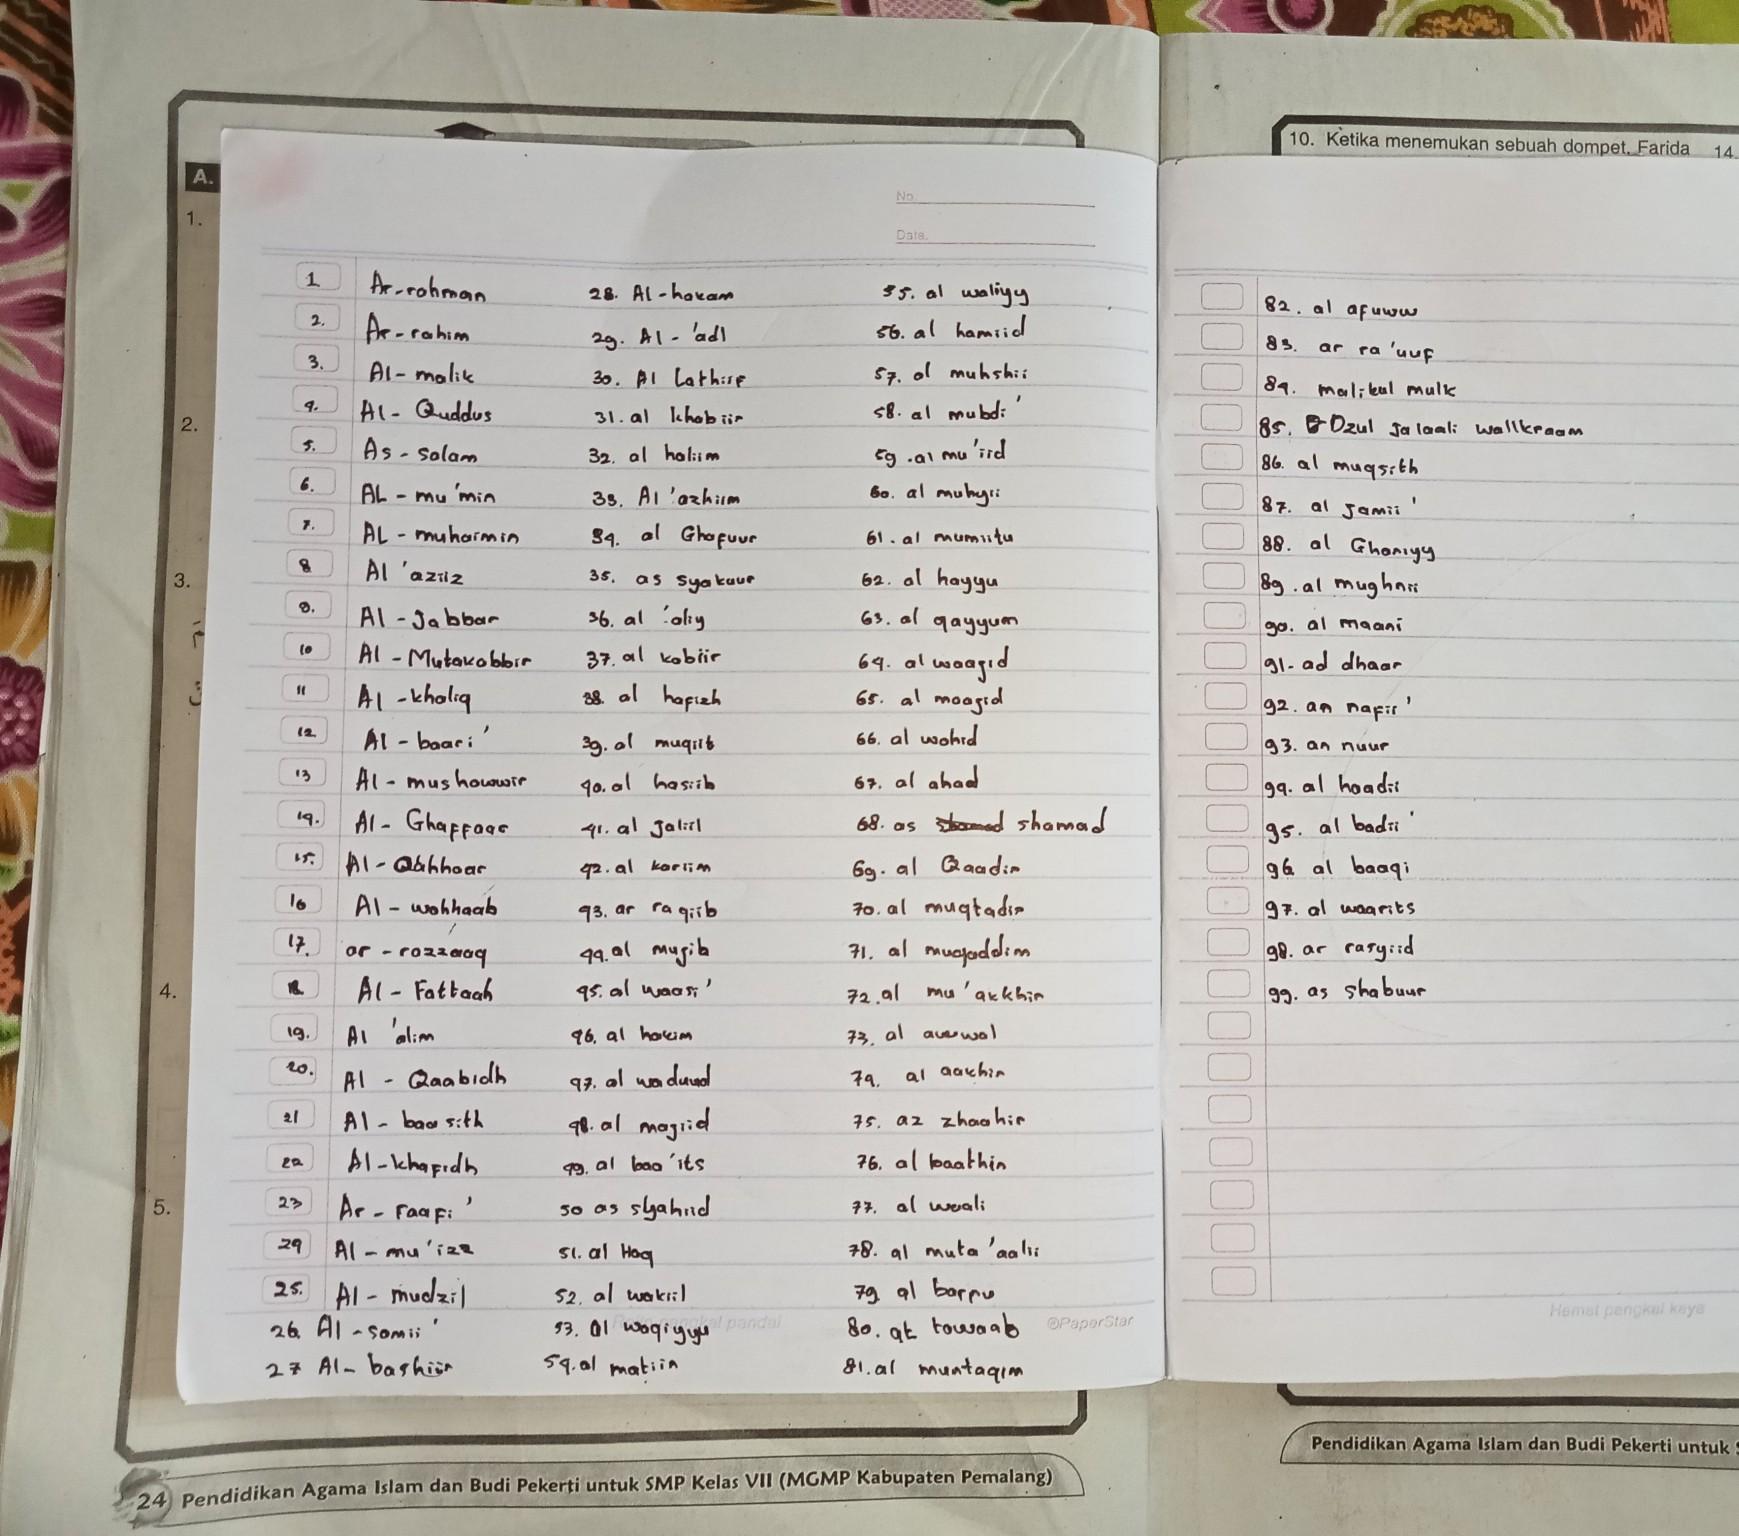 10. Ketika menemukan sebuah dompet, Farida
14.
A.
1.
2.
3.
4.
5.
No.
Date.
1 Ar-rohman
2. Ar-rahim
3. Al-malik
4. Al-Quddus
5. As-salam
6. AL-mu'min
7. AL-muhaimin
8 Al 'aziiz
9. Al-Jabbar
10 Al-Mutakabbir
11 Al-khaliq
12 Al-baari'
13 Al-mushowwir
14. Al-Ghaffaar
15. Al-Qahhaar
16 Al-wahhaab
17. ar-rozzaaq
18 Al-Fattaah
19. Al 'alim
20. Al-Qaabidh
21 Al-baasith
22 Al-khafidh
23 Ar-raafi'
24 Al-mu'izz
25. Al-mudzil
26 Al-samii'
27 Al-bashiir
28. Al-hakam
29. Al-'adl
30. Al Lathiif
31. al khabiir
32. al haliim
33. Al 'azhiim
34. al Ghafuur
35. as syakuur
36. al 'aliy
37. al kabiir
38. al hafizh
39. al muqiit
40. al hasiib
41. al Jaliil
42. al kariim
43. ar raqiib
44. al mujib
45. al waasi'
46. al hakim
47. al waduud
48. al majiid
49. al baa'its
50 as syahiid
51. al Haq
52. al wakiil
53. al waqiyyu
54. al matiin
55. al waliyy
56. al hamiid
57. al muhshii
58. al mubdi'
59. al mu'iid
60. al muhyii
61. al mumiitu
62. al hayyu
63. al qayyum
64. al waajid
65. al maajid
66. al wahid
67. al ahad
68. as shamad
69. al Qaadir
70. al muqtadir
71. al muqaddim
72. al mu'akkhir
73. al awwal
74. al aakhir
75. az zhaahir
76. al baathin
77. al waali
78. al muta'aalii
79 al barru
80. at tawaab
81. al muntaqim
Hemat pangkal kaya
@PaperStar
82. al afuww
83. ar ra'uuf
84. malikul mulk
85. Dzul Jalaali wallkraam
86. al muqsith
87. al Jamii'
88. al Ghaniyy
89. al mughnii
90. al maani
91. ad dhaar
92. an nafii'
93. an nuur
94. al haadii
95. al badii'
96 al baaqi
97. al waarits
98. ar rasyiid
99. as shabuur
24 Pendidikan Agama Islam dan Budi Pekerti untuk SMP Kelas VII (MGMP Kabupaten Pemalang)
Pendidikan Agama Islam dan Budi Pekerti untuk